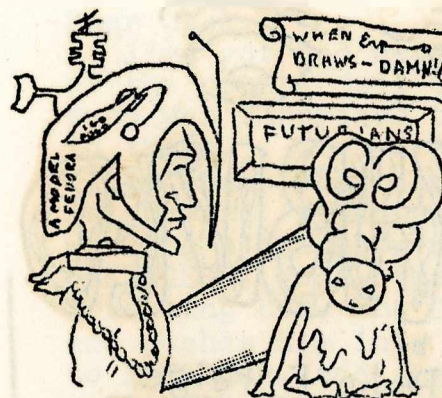 WHEN
DRAWS - DAMN!!
FUTURIANS
A MODEL
FEDORA